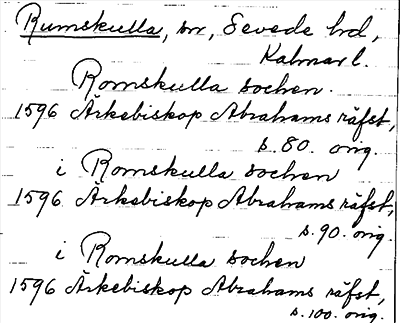 Rumskulla, sn, Sevede hd,
Kalmar l.
Romskulla sochen.
1596 Ärkebiskop Abrahams räfst,
s. 80. orig.
i Romskulla sochen
1596 Ärkebiskop Abrahams räfst,
s. 90. orig.
i Romskulla sochen
1596 Ärkebiskop Abrahams räfst,
s. 100. orig.